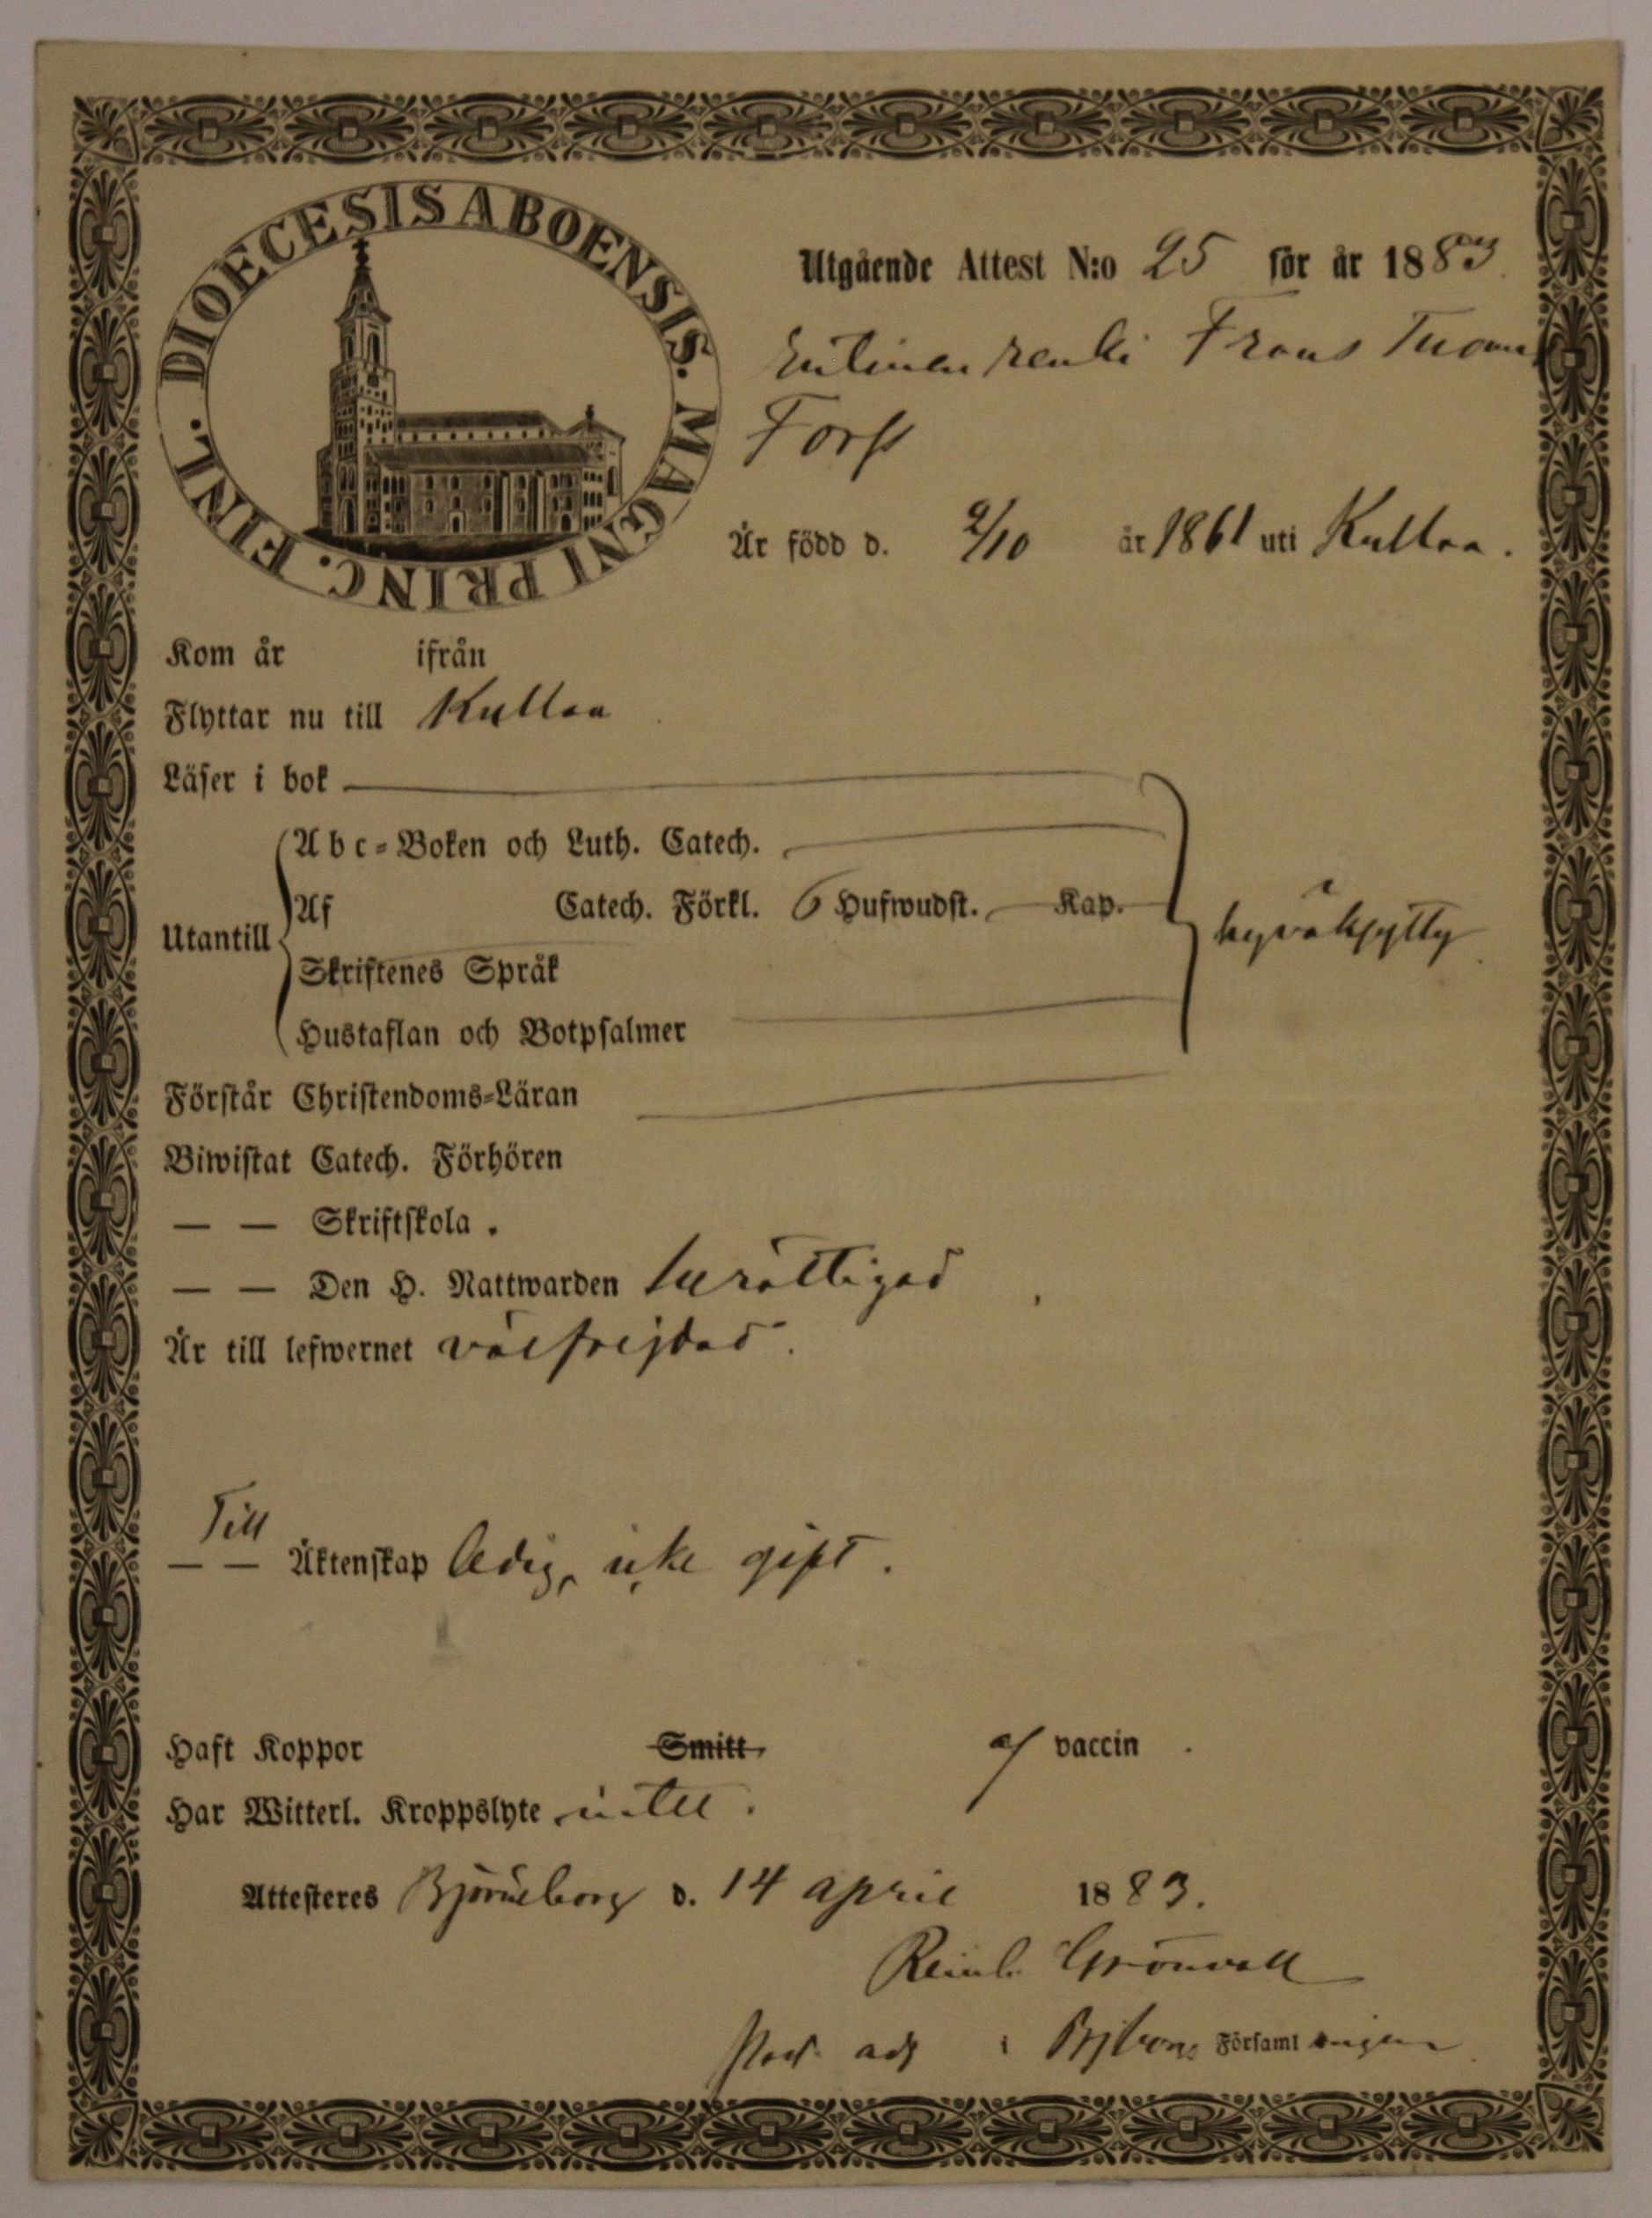 DIOECESIS ABOENSIS. MAGNI PRINC. FINL.
Utgående Attest N:o 25 för år 1883.
Entinen renki Frans Tuomas
Forss
Är född d. 2/10 år 1861 uti Kullaa.
Kom år ifrån
Flyttar nu till Kullaa
Läser i bok
Abc-Boken och Luth. Catech.
Utantill
Af Catech. Förkl. 6 Hufwudst. Kap. hyväksytty
Skriftenes Språk
Hustaflan och Botpsalmer
Förstår Christendoms-Läran
Biwistat Catech. Förhören
— — Skriftskola.
— — Den H. Nattwarden berättigad
Är till lefwernet välfrejdad.
Till
— — Äktenskap ledig, icke gift.
Haft Koppor Smitt. af vaccin.
Har Witterl. Kroppslyte intet.
Attesteres Björneborg d. 14 april 1883.
Reinh. Grönvall
Past. adj i Bjborgs Församlingen